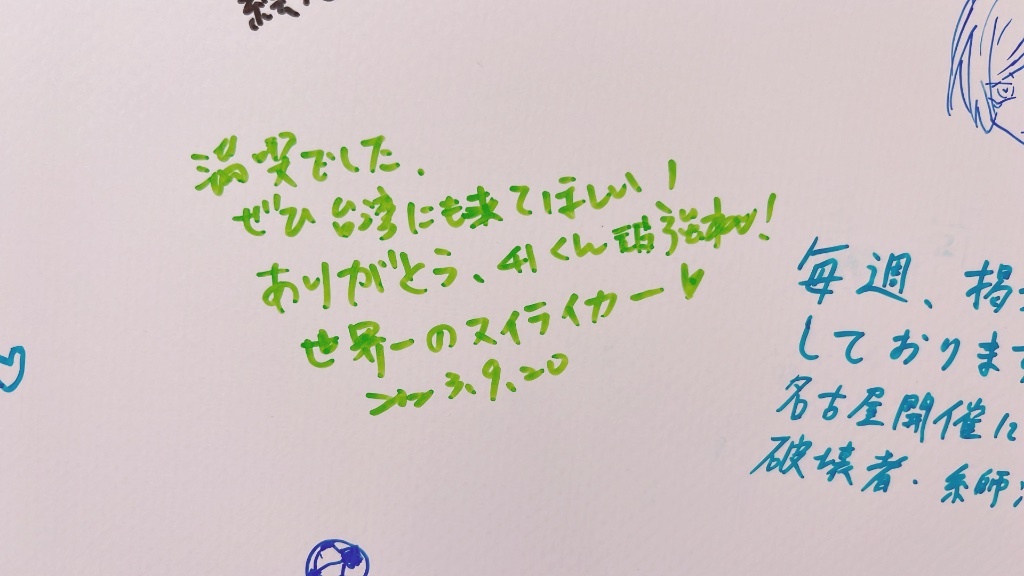 満喫でした.
ぜひ台湾にも来てほしい!
ありがとう、くん頑張れ!
世界一のスイライカー♥
2023.9.20
毎週、掲
しております
名古屋開催に
破壊者・糸師